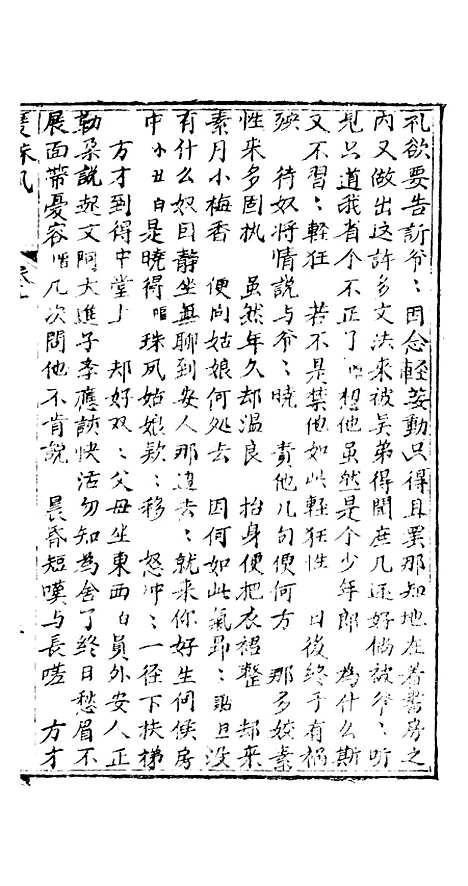 礼欲要告訴爷：因念輕姜勤只得且罢那知地在着書房之
内又做出这許多文法来被吴弟得聞庶几还好倘被爷：听
見只道我省个不正了 唱 想他虽然是个少年郎 為什么斯
文不習：輕狂 若不是禁他如此輕狂性 日後終于有禍
殃 待奴将情說与爷：曉 责他几句便何方 那多姣素
性来多固执 虽然年久却温良 抬身便把衣裙整 却来
素月小梅香 便向姑娘何处去 因何如此氣昂： 旦没
有什么奴自静坐無聊到安人那边去：就来你好生伺候房
中 小丑白 是曉得 唱 珠凤姑娘款：移 怒冲：一径下扶梯
方才到得中堂上 却好双：父母坐東西 白 員外安人正
勒朵說起文 大進子李應 快活勿知為舍了終日愁眉不
展面帶憂容 唱 几次問他不肯說 晨昏短嘆与長嗟 方才
珠凤